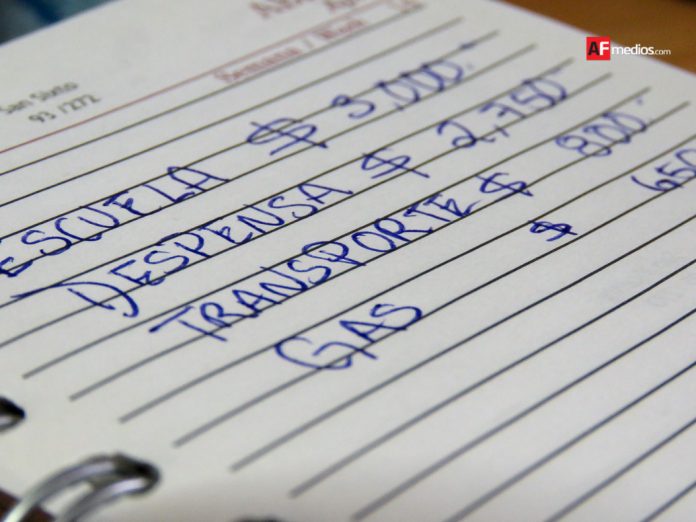 AFmedios.com
Semana / Week
San Sixto
93 / 272
ESCUELA $ 3,000.-
DESPENSA $ 2,750
TRANSPORTE $ 800.-
GAS $ 650